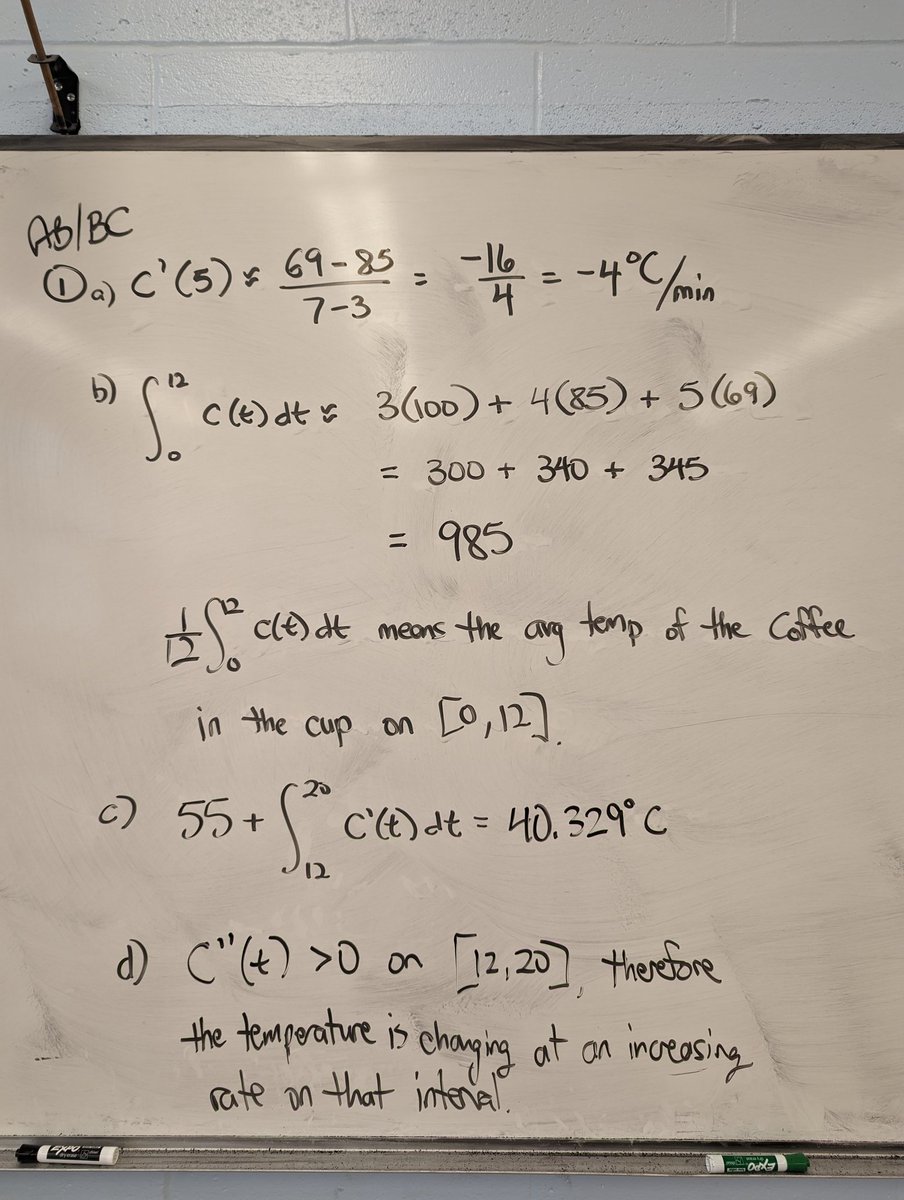 AB/BC
① a) C'(5) ≈ 69-85 / 7-3 = -16 / 4 = -4°C/min
b) ∫₀¹² C(t) dt ≈ 3(100) + 4(85) + 5(69)
= 300 + 340 + 345
= 985
1/12 ∫₀¹² C(t) dt means the avg temp of the Coffee
in the cup on [0,12].
c) 55 + ∫₁₂²⁰ C'(t) dt = 40.329°C
d) C''(t) >0 on [12,20], therefore
the temperature is changing at an increasing
rate on that interval.
EXPO
EXPO